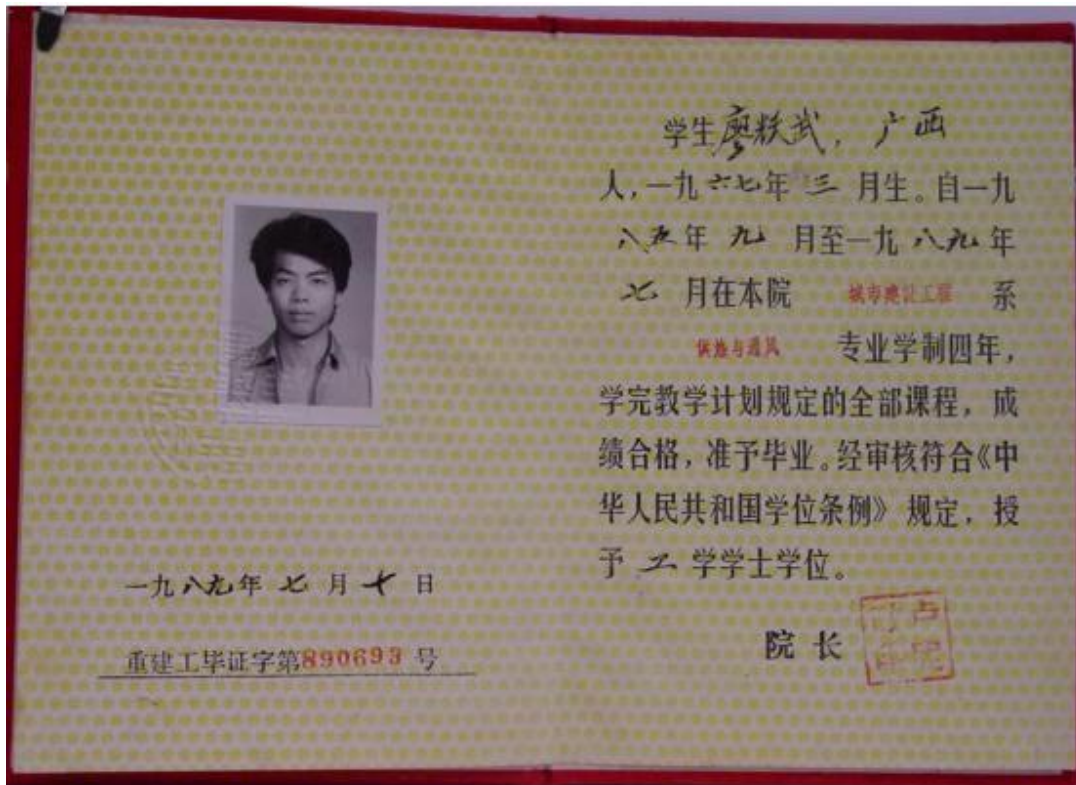 一九八九年七月十日
重建工毕证字第890693号
学生廖 武，广西
人，一九六七年三月生。自一九
八五年九月至一九八九年
七月在本院 城市建设工程 系
供热与通风 专业学制四年，
学完教学计划规定的全部课程，成
绩合格，准予毕业。经审核符合《中
华人民共和国学位条例》规定，授
予工学学士学位。
院长